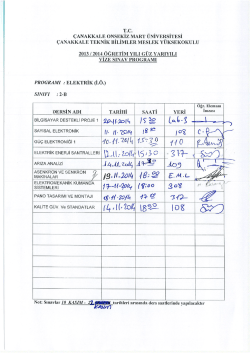 T.C.
ÇANAKKALE ONSEKİZ MART ÜNİVERSİTESİ
ÇANAKKALE TEKNİK BİLİMLER MESLEK YÜKSEKOKULU
2013 / 2014 ÖĞRETİM YILI GÜZ YARIYILI
VİZE SINAV PROGRAMI
PROGRAMI : ELEKTRİK (İ.Ö.)
SINIFI : 2-B
DERSİN ADI TARİHİ SAATİ YERİ Öğr. Elemanı İmzası
BİLGİSAYAR DESTEKLİ PROJE 1 20.11.2014 Lab-3
SAYISAL ELEKTRONİK 11.11.2014 108
GÜÇ ELEKTRONİĞİ 1 10.11.2014 15:30 110
ELEKTRİK ENERJİ SANTRALLERİ 12.11.2014 15:30 317
ARIZA ANALİZİ 14.11.2014 109
ASENKRON VE SENKRON MAKİNALAR 19.11.2014 18:00 E.M.L
ELEKTROMEKANİK KUMANDA SİSTEMLERİ 17-11-2014 18:00 308
PANO TASARIMI VE MONTAJI 11.2014 317
KALİTE GÜV. Ve STANDATLAR 14.11.2014 108
Not: Sınavlar 10 KASIM - KASIM tarihleri arasında ders saatlerinde yapılacaktır